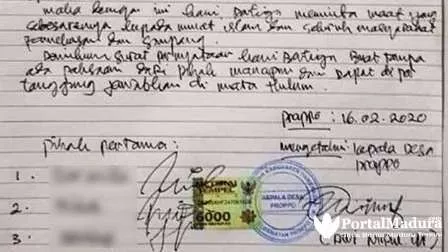 maka dengan ini kami bertiga meminta maaf yang
sebesarnya kepada umat islam dan seluruh masyarakat
Pamekasan dan Sampang.
Demikian surat pernyataan kami bertiga buat tanpa
ada paksaan dari pihak manapun dan dapat di per
tanggung jawabkan di mata hukum.
proppo : 16.02.2020
pihak pertama :
mengetahui kepala Desa
proppo
1.
2.
3
METERAI
TEMPEL
6000
KEPALA DESA
PROPPO
PortalMadura